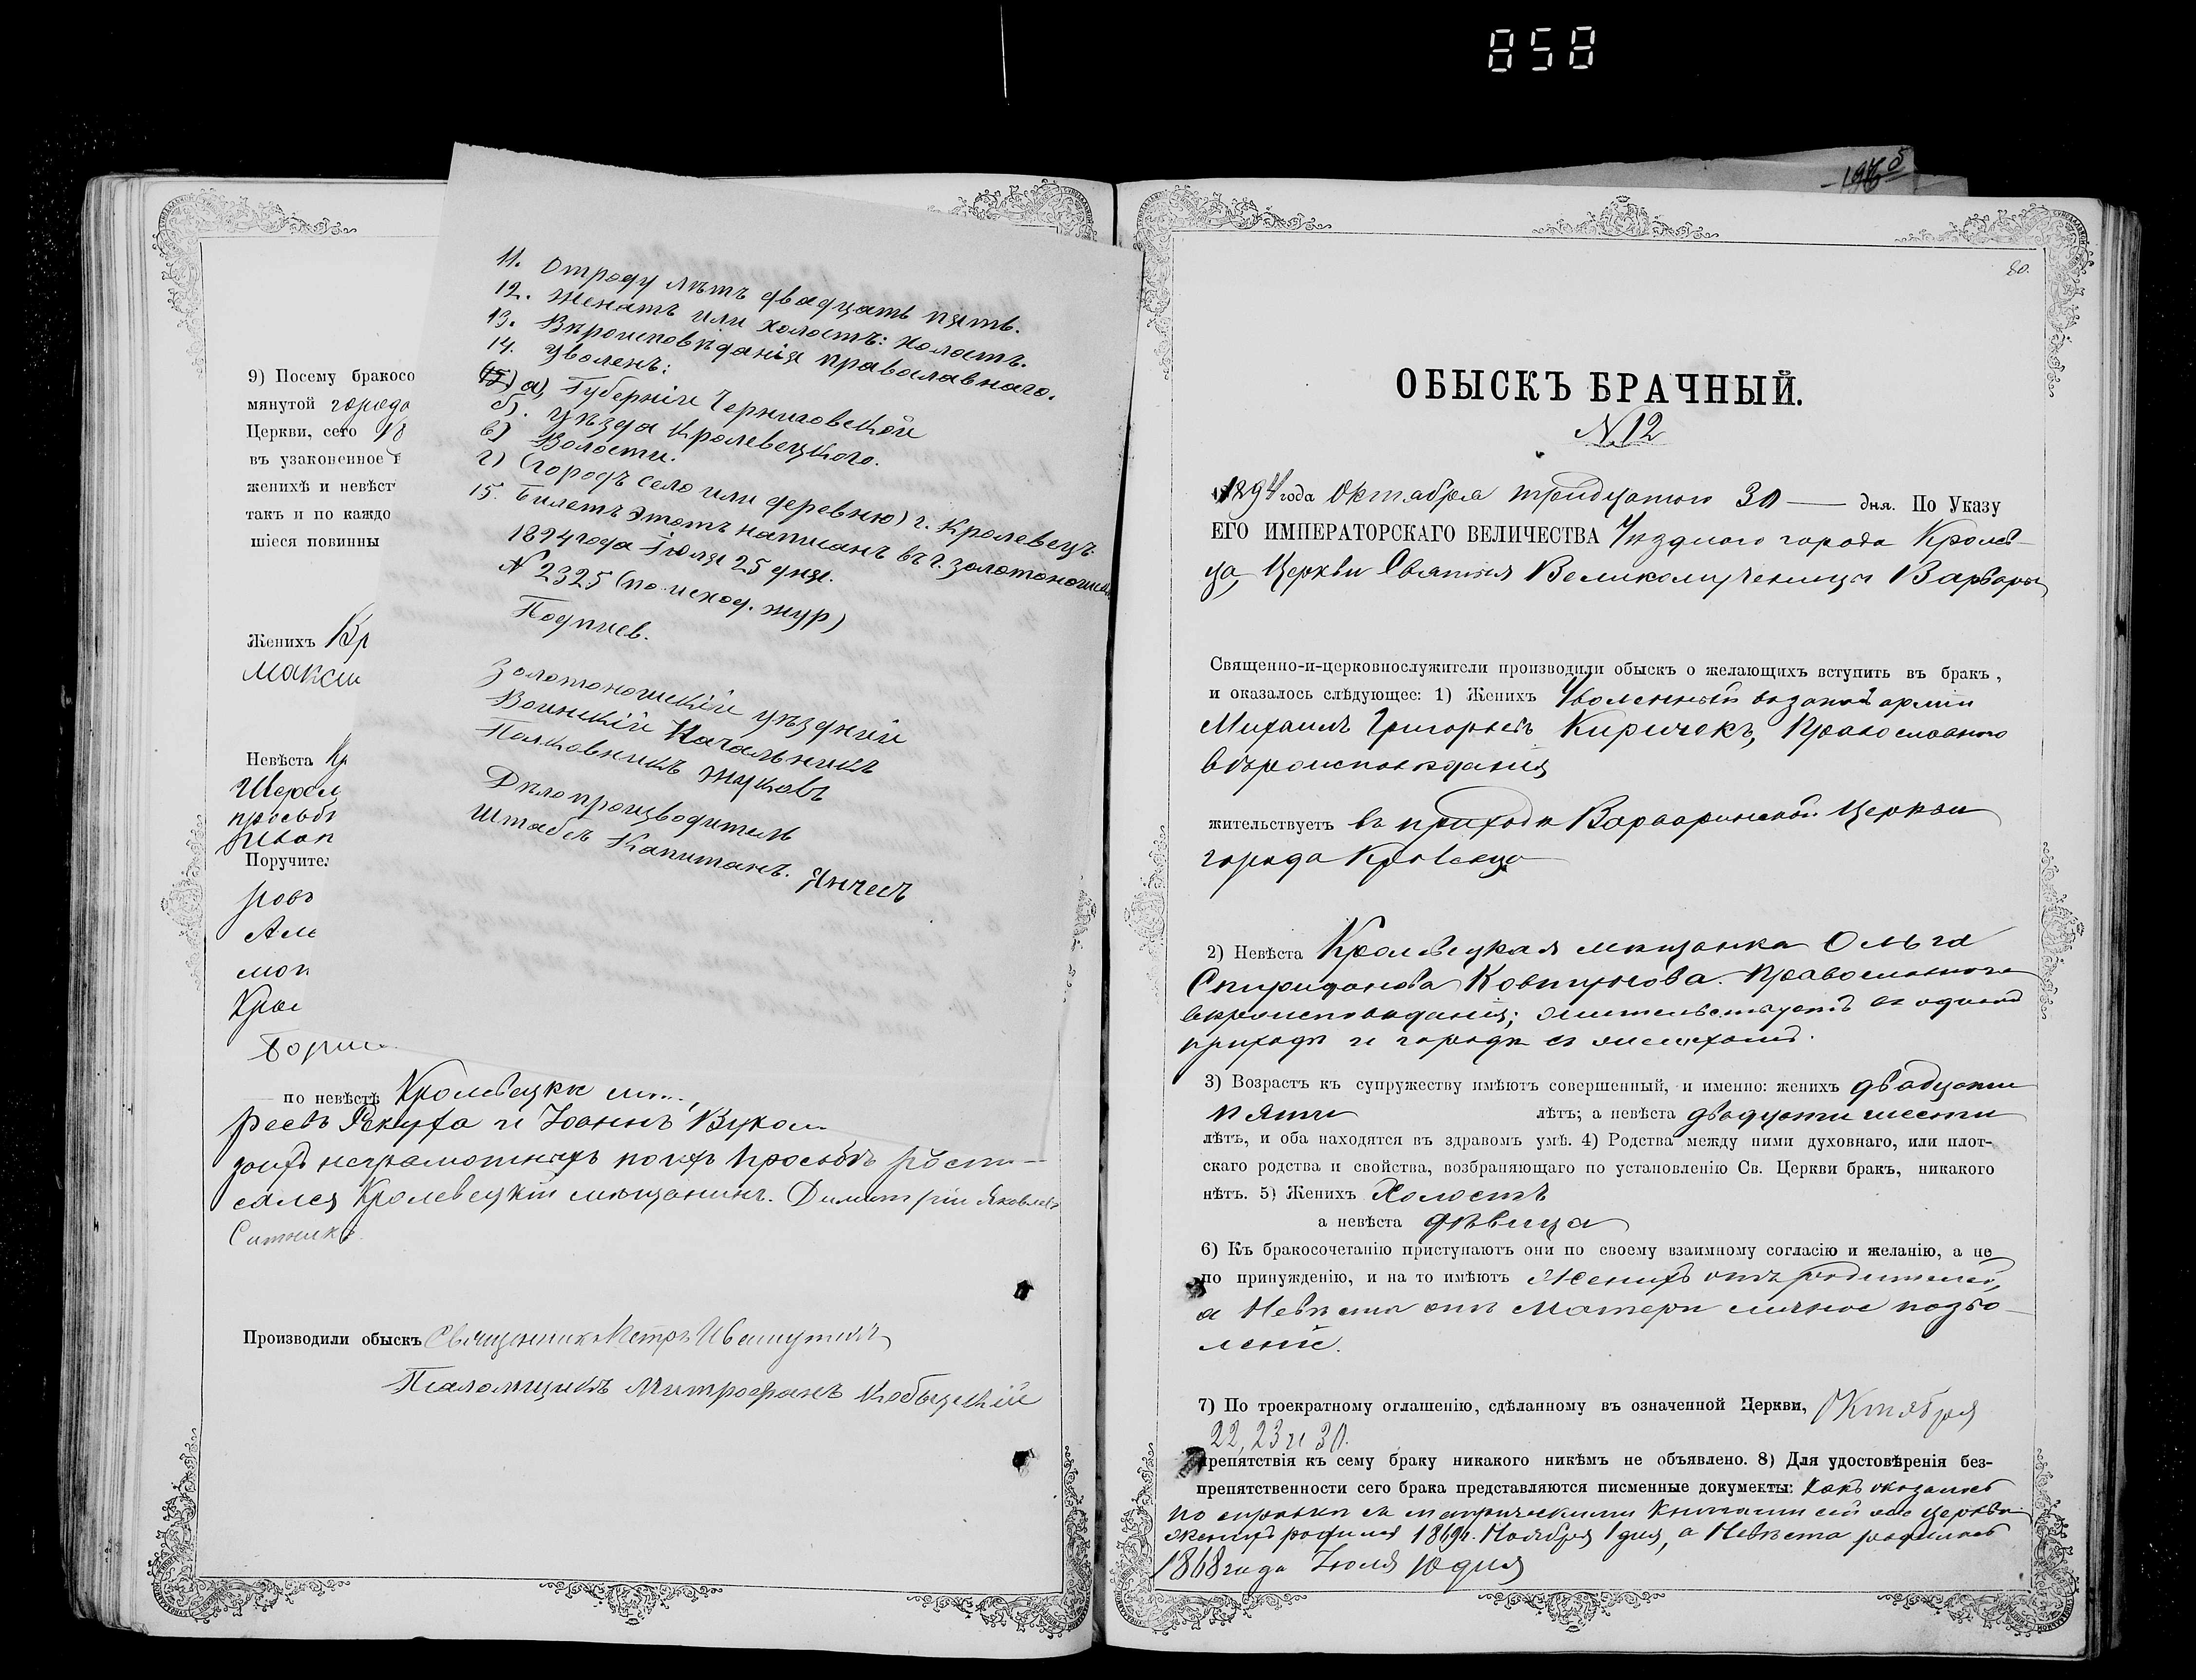 858
196 5
9) Посему бракосо
мянутой города
Церкви, сего 18
въ узаконенное
женихѣ и невѣст
такъ и по каждо
шіеся повинны
Женихъ Кр
Макси
Невѣста Кр
просьбѣ
Иван
Поручите
ровъ
Але
Крол
по невѣстѣ Кролевецкіе
реевъ Рекуха и Іоаннъ Вукол
неграмотныхъ по ихъ просьбѣ роспи-
сался Кролевецкій мѣщанинъ. Димитрій Яковлевъ
Ситник
Производили обыскъ Священникъ Петръ
Псаломщикъ Митрофанъ Кобыщскій
11. Отроду лѣтъ двадцать пять.
12. Женатъ или холостъ: холостъ.
13. Вѣроисповѣданія православнаго.
14. Уволенъ:
а) Губерніи Черниговской
б). уѣзда Кролевецкого.
в) Волости.
г) (городъ село или деревню) г. Кролевецъ.
15. Билетъ этотъ написанъ въ г. Золотоноши
1894 года Іюля 25 дня.
№ 2325 (по исход. жур)
Подпись.
Золотоношскій уѣздный
Воинскій Начальникъ
Полковникъ Жуковъ
Дѣлопроизводитель
Штабсъ Капитанъ.
80.
ОБЫСКЪ БРАЧНЫЙ.
N. 12
1894 года Октября тридцатого 30 — дня. По Указу
ЕГО ИМПЕРАТОРСКАГО ВЕЛИЧЕСТВА Уѣздного города Кролев-
ца, Церкви Святыя Великомученицы Варвары
Священно-и-церковнослужители производили обыскъ о желающихъ вступить въ бракъ,
и оказалось слѣдующее: 1) Женихъ Уволенный въ запасъ арміи
Михаилъ Григорьевъ Киричекъ, Православного
вѣроисповѣданія
жительствуетъ въ приходѣ Варваринской Церкви
города Кролевца
2) Невѣста Кролевецкая мѣщанка Ольга
Спиридонова Ковтунова. Православного
вѣроисповѣданія; жительствуетъ въ одномъ
приходѣ и городѣ съ женихомъ.
3) Возрастъ къ супружеству имѣютъ совершенный, и именно: женихъ двадцати
пяти лѣтъ; а невѣста двадцати шести
лѣтъ, и оба находятся въ здравомъ умѣ. 4) Родства между ними духовнаго, или плот-
скаго родства и свойства, возбраняющаго по установленію Св. Церкви бракъ, никакого
нѣтъ. 5) Женихъ Холостъ
а невѣста дѣвица
6) Къ бракосочетанію приступаютъ они по своему взаимному согласію и желанію, а не
по принужденію, и на то имѣютъ Женихъ отъ родителей,
а Невѣста отъ Матери личное позво-
леніе.
7) По троекратному оглашенію, сдѣланному въ означенной Церкви, Октября
22, 23 и 30.
препятствія къ сему браку никакого никѣмъ не объявлено. 8) Для удостовѣренія без-
препятственности сего брака представляются писменные документы: Какъ оказалось
по справкѣ съ метрическими книгами сей же церкви
женихъ родился 1869 г. Ноября 1 дня, а Невѣста родилась
1868 года Іюля 10 дня